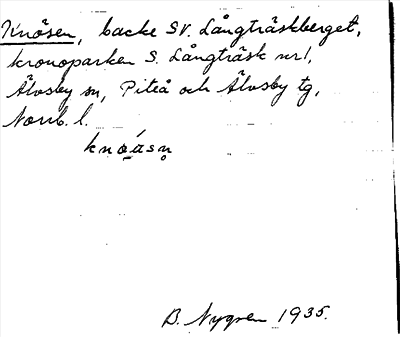 Knösen, backe SV. Långträskberget,
kronoparken S. Långträsk nr 1,
Älvsby sn, Piteå och Älvsby tg,
Norrb. l.
kno̱ásn̥
B. Nygren 1935.